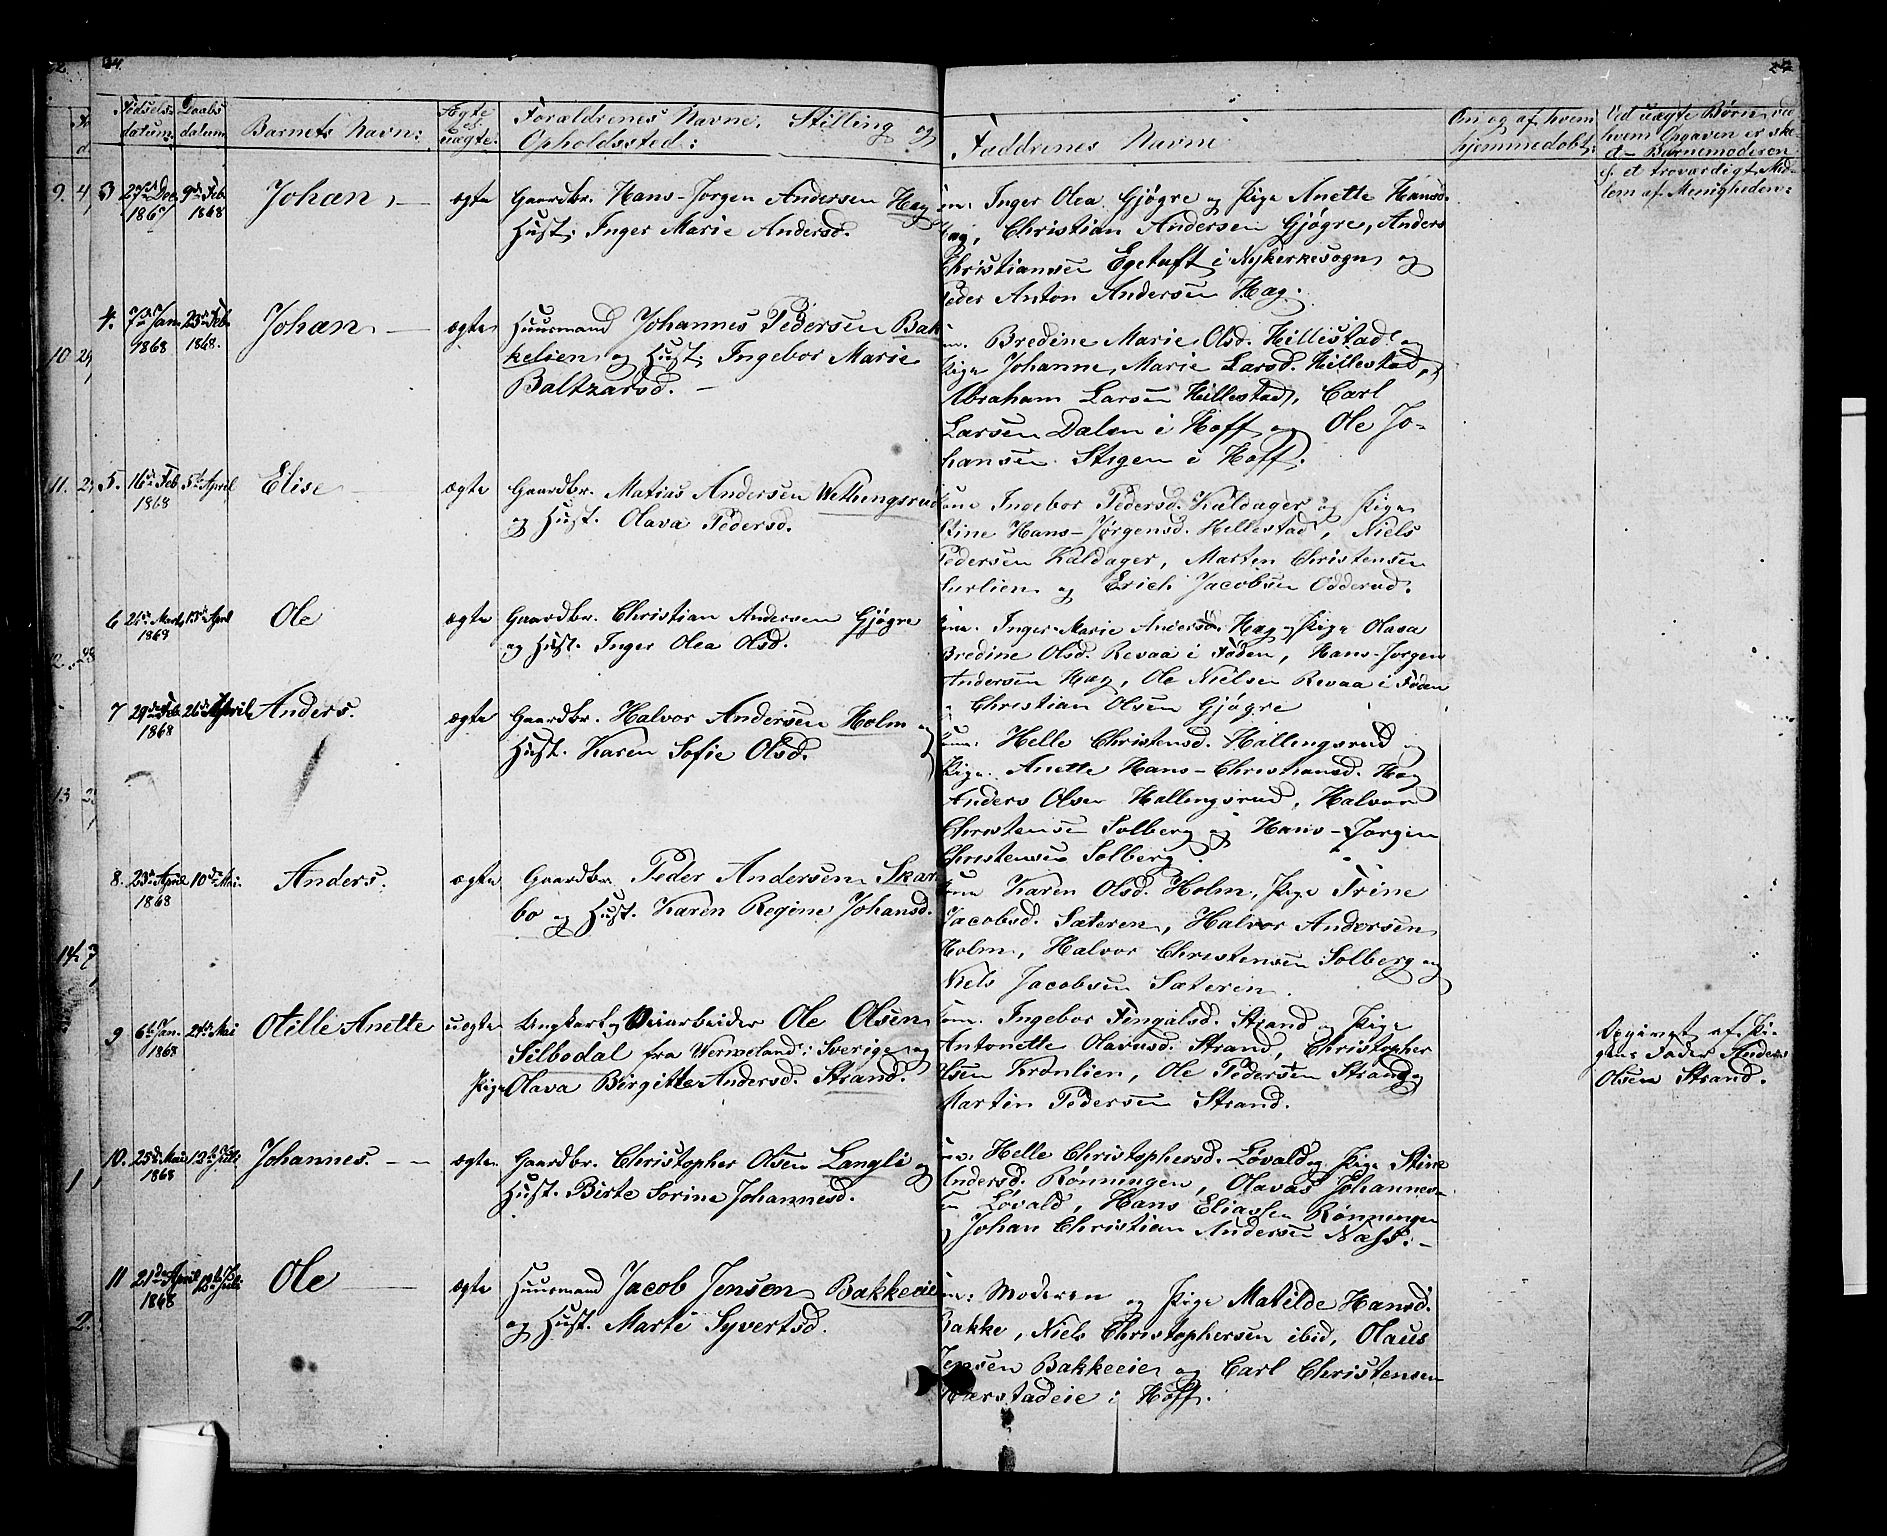 24.
Fødsels-
datum.
Daabs
datum
Barnets Navn:
Ægte
el.
uægte.
Forældrenes Navne, Stilling og
Opholdssted:
Faddrenes Navne
Om og af hvem
hjemmedøbt:
Ved uægte Børn, ved
hvem Opgaven er ske
et troværdigt Med
lem af Menigheden:
3 27de Dec 9de Feb. Johan, — ægte Gaardbr. Hans-Jørgen Andersen Hag
1867 1868 Hust: Inger Marie Andersd.
Inger Olea Gjøgre og Pige Anette Hansd.
Hag, Christian Andersen Gjøgre, Anders
Christiansen Egetuft i Nykirkesogn og
Peder Anton Andersen Hag.
4. 7de Jan 23de Feb. Johan — ægte Huusmand Johannes Pedersen Bak
1868 1868. kelien og Hust: Ingebor Marie
Baltzarsd. —
Bredine Marie Olsd. Hillestad og
Pige Johanne Marie Larsd. Hillestad,
Abraham Larsen Hillestad, Carl
Larsen Dalen i Hoff og Ole Jo-
hansen Stigen i Hoff.
5. 16de Feb. 5te April Elise — ægte Gaardbr. Matias Andersen Wethungsrud
1868 og Hust. Olava Pedersd.
Kone Ingebor Pedersd. Kaldager og Pige
Stine Hans-Jørgensd. Hillestad, Niels
Pedersen Kaldager, Marten Christensen
og Erich Jacobsen Odderud.
6 Ole ægte Gaardbr. Christian Andersen Gjøgre
og Hust. Inger Olea Olsd.
Kone. Inger Marie Andersd. Hag, Pige Olava
Bredine Olsd. Revaa i Foden, Hans-Jørgen
Andersen Hag, Ole Nielsen Revaa i Foden
Christian Olsen Gjøgre
7 29de Feb. 26de April Anders. ægte Gaardbr. Halvor Andersen Holm og
1868 Hust. Karen Sofie Olsd.
Kone: Helle Christensd. Hallingsrud og
Pige. Anette Hans-Christiansd. Hag
Anders Olsen Hallingsrud, Halvor
Christensen Solberg og Hans-Jørgen
Christensen Solberg.
8. 23de April 10de Mai. Anders. ægte Gaardbr. Peder Andersen Skar
1868 bo og Hust. Karen Regine Johansd.
Kone Karen Olsd. Holm, Pige Trine
Jacobsd. Sateren, Halvor Andersen
Holm, Halvor Christensen Solberg og
Niels Jacobsen Sateren.
9 6te Jan. 24de Mai Otille Anette uægte Ungkarl og Veiarbeider Ole Olsen
1868 Silbodal fra Wermeland i Sverige og
Pige Olava Birgitte Andersd. Strand.
Kone. Ingebor Fingalsd. Strand og Pige
Antonette Olavusd. Strand, Christopher
Olsen Kronlien, Ole Pedersen Strand og
Martin Pedersen Strand.
Opgivet af Pi-
gens Fader Anders
Olsen Strand.
10. 25de Mai 12te Juli Johannes. — ægte. Gaardbr. Christopher Olsen Langli og
1868 Hust. Birte Sorine Johannesd.
Helle Christophersd. Løvald og Pige Stine
Andersd. Rønningen, Olavas Johannes-
sen Løvald, Hans Eliassen Rønningen
Johan Christian Andersen Næss. —
11 21de April 12te Juli Ole — ægte Huusmand Jacob Jensen Bakkeeie
1868 og Hust. Marte Syvertsd.
Moderen og Pige Matilde Hansd.
Bakke, Niels Christophersen ibid, Olaus
Jensen Bakkeeie og Carl Christensen
i Hoff.